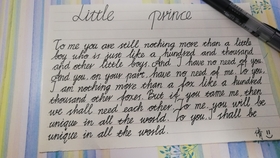 Little prince
To me you are still nothing more than a little
boy who is just like a hundred and thousand
and other little boys. And I have no need of you.
And you, on your part, have no need of me. To you,
I am nothing more than a fox like a hundred
thousand other foxes. But if you tame me, then
we shall need each other. To me, you will be
unique in all the world. To you, I shall be
unique in all the world.